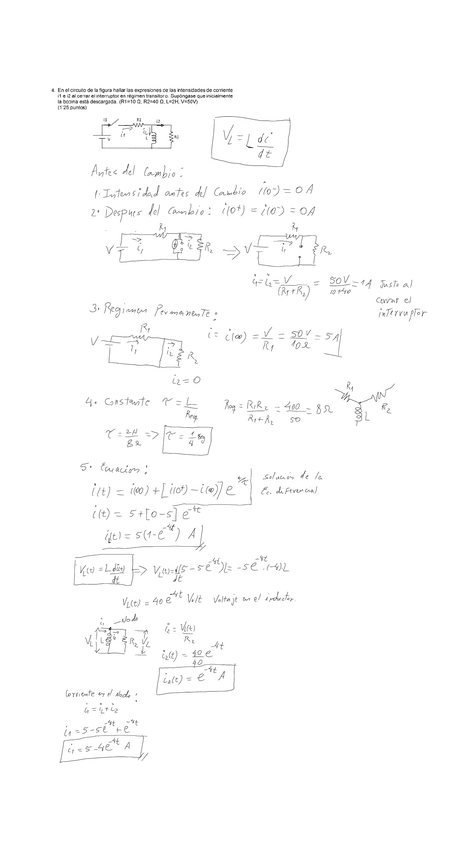 4. En el circuito de la figura hallar las expresiones de las intensidades de corriente
i1 e i2 al cerrar el interruptor en régimen transitorio. Supóngase que inicialmente
la bobina está descargada. (R1=10 Ω, R2=40 Ω, L=2H, V=50V)
(1'25 puntos)
V_L = L di/dt
Antes del Cambio:
1. Intensidad antes del Cambio i(0-) = 0 A
2. Despues del cambio: i(0+) = i(0-) = 0A
V R1 i1 i2 R2 => V R1 i1 R2
i1 = i2 = V/(R1+R2) = 50V/10+40 = 1A Justo al
cerrar el
interruptor
3. Regimen Permanente:
V R1 i1 R2
i = i(∞) = V/R1 = 50V/10Ω = 5A
i2 = 0
4. Constante τ = L/Req
Req = R1R2/R1+R2 = 400/50 = 8Ω
R1 L R2
τ = 2H/8Ω => τ = 1/4 seg
5. Ecuacion:
i(t) = i(∞) + [i(0+) - i(∞)] e^-t/τ
solucion de la
Ec. diferencial
i(t) = 5 + [0-5] e^-4t
i(t) = 5(1-e^-4t) A
V_L(t) = L di(t)/dt => V_L(t) = d/dt(5-5e^-4t)L = -5e^-4t.(-4)L
V_L(t) = 40e^-4t Volt Voltaje en el inductor.
i1 Nodo
V_L L R2 V_L
i2 = V_L(t)/R2
i2(t) = 40/40 e^-4t
i2(t) = e^-4t A
Corriente en el Nodo:
i1 = i_L + i2
i1 = 5-5e^-4t + e^-4t
i1 = 5-4e^-4t A